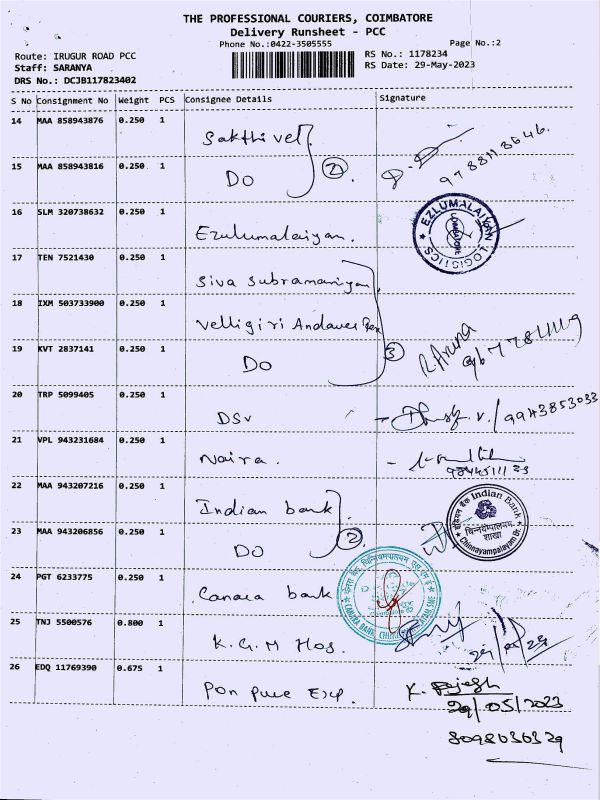 THE PROFESSIONAL COURIERS, COIMBATORE
Delivery Runsheet - PCC
Phone No.:0422-3505555
Page No.:2
Route: IRUGUR ROAD PCC
RS No.: 1178234
Staff: SARANYA
RS Date: 29-May-2023
DRS No.: DCJB117823402
S No Consignment No Weight PCS Consignee Details Signature
14 MAA 858943876 0.250 1
Sakthivel
15 MAA 858943816 0.250 1
DO 2 9788113646.
16 SLM 320738632 0.250 1
Ezulumalaiyan. EZLUMALAIYAN LOGISTICS COIMBATORE
17 TEN 7521430 0.250 1
Siva Subramaniyan
18 IXM 503733900 0.250 1
Velligiri Andaver
19 KVT 2837141 0.250 1
DO 3 R. Aruna
20 TRP 5099405 0.250 1
DSV 9943853033
21 VPL 943231684 0.250 1
Naira.
22 MAA 943207216 0.250 1
Indian bank Indian Bank Chinnayampalayam Br.
23 MAA 943206856 0.250 1
DO 2
24 PGT 6233775 0.250 1
Canara bank CANARA BANK
25 TNJ 5500576 0.800 1
K.G.M Hos.
26 EDQ 11769390 0.675 1
Pon pure Exp. K. Rajesh
29/05/2023
8098030329